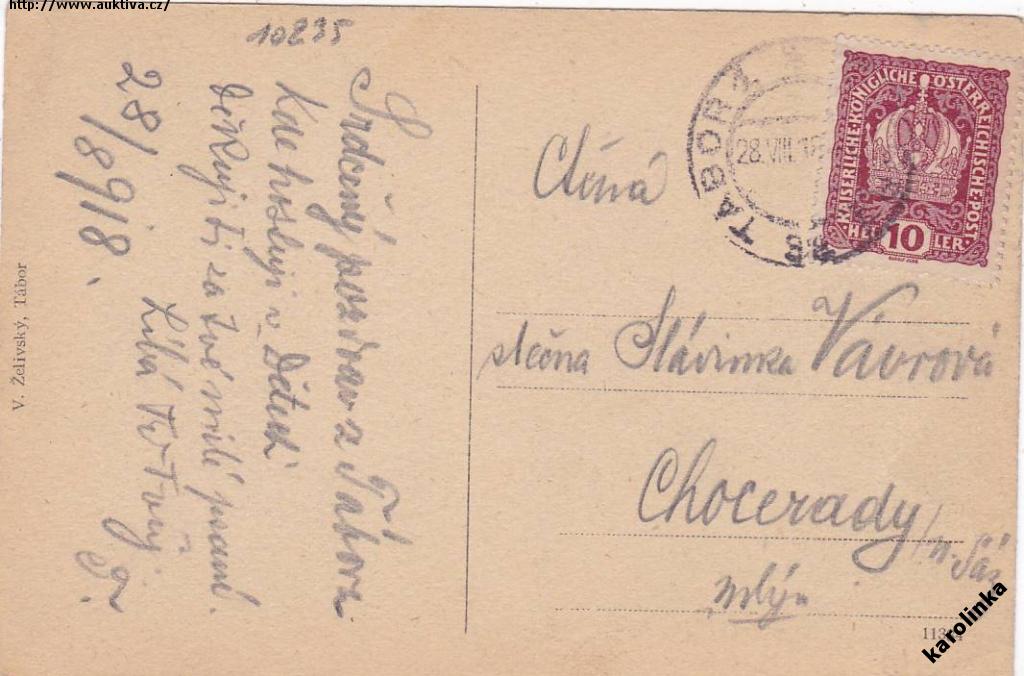 http://www.auktiva.cz/
10235
Srdečný pozdrav z Tábora
Kde hostuji v
Děkuji ti za tvé milé psaní.
Líbá Tě Tvůj
28/8 918.
V. Zelivský, Tábor
TÁBOR
28.VIII.
KAISERLICHE KÖNIGLICHE ÖSTERREICHISCHE POST
HELLER
10
Ctěná
slečna Slávinka Vávrová
Chocerady
n. Sáz
mlýn
karolinka